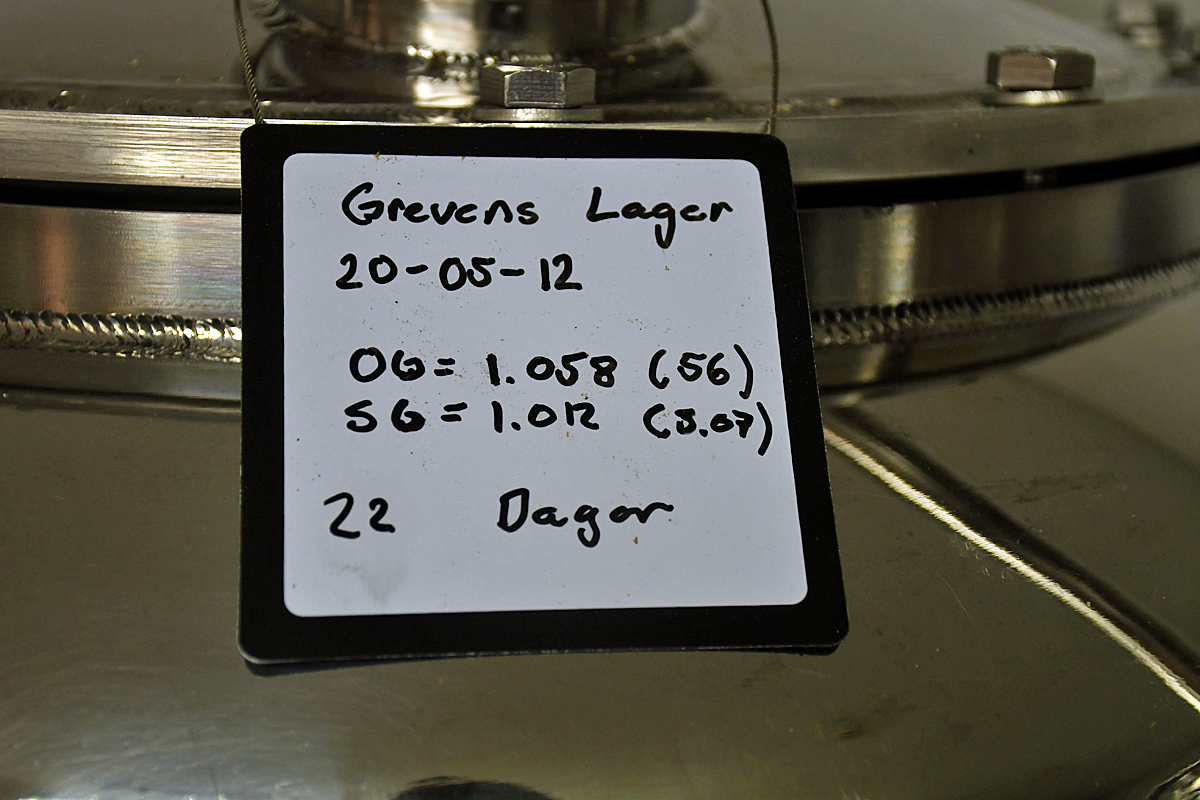 Grevens Lager
20-05-12
OG= 1.058 (56)
SG= 1.012 (5.07)
22 Dagar